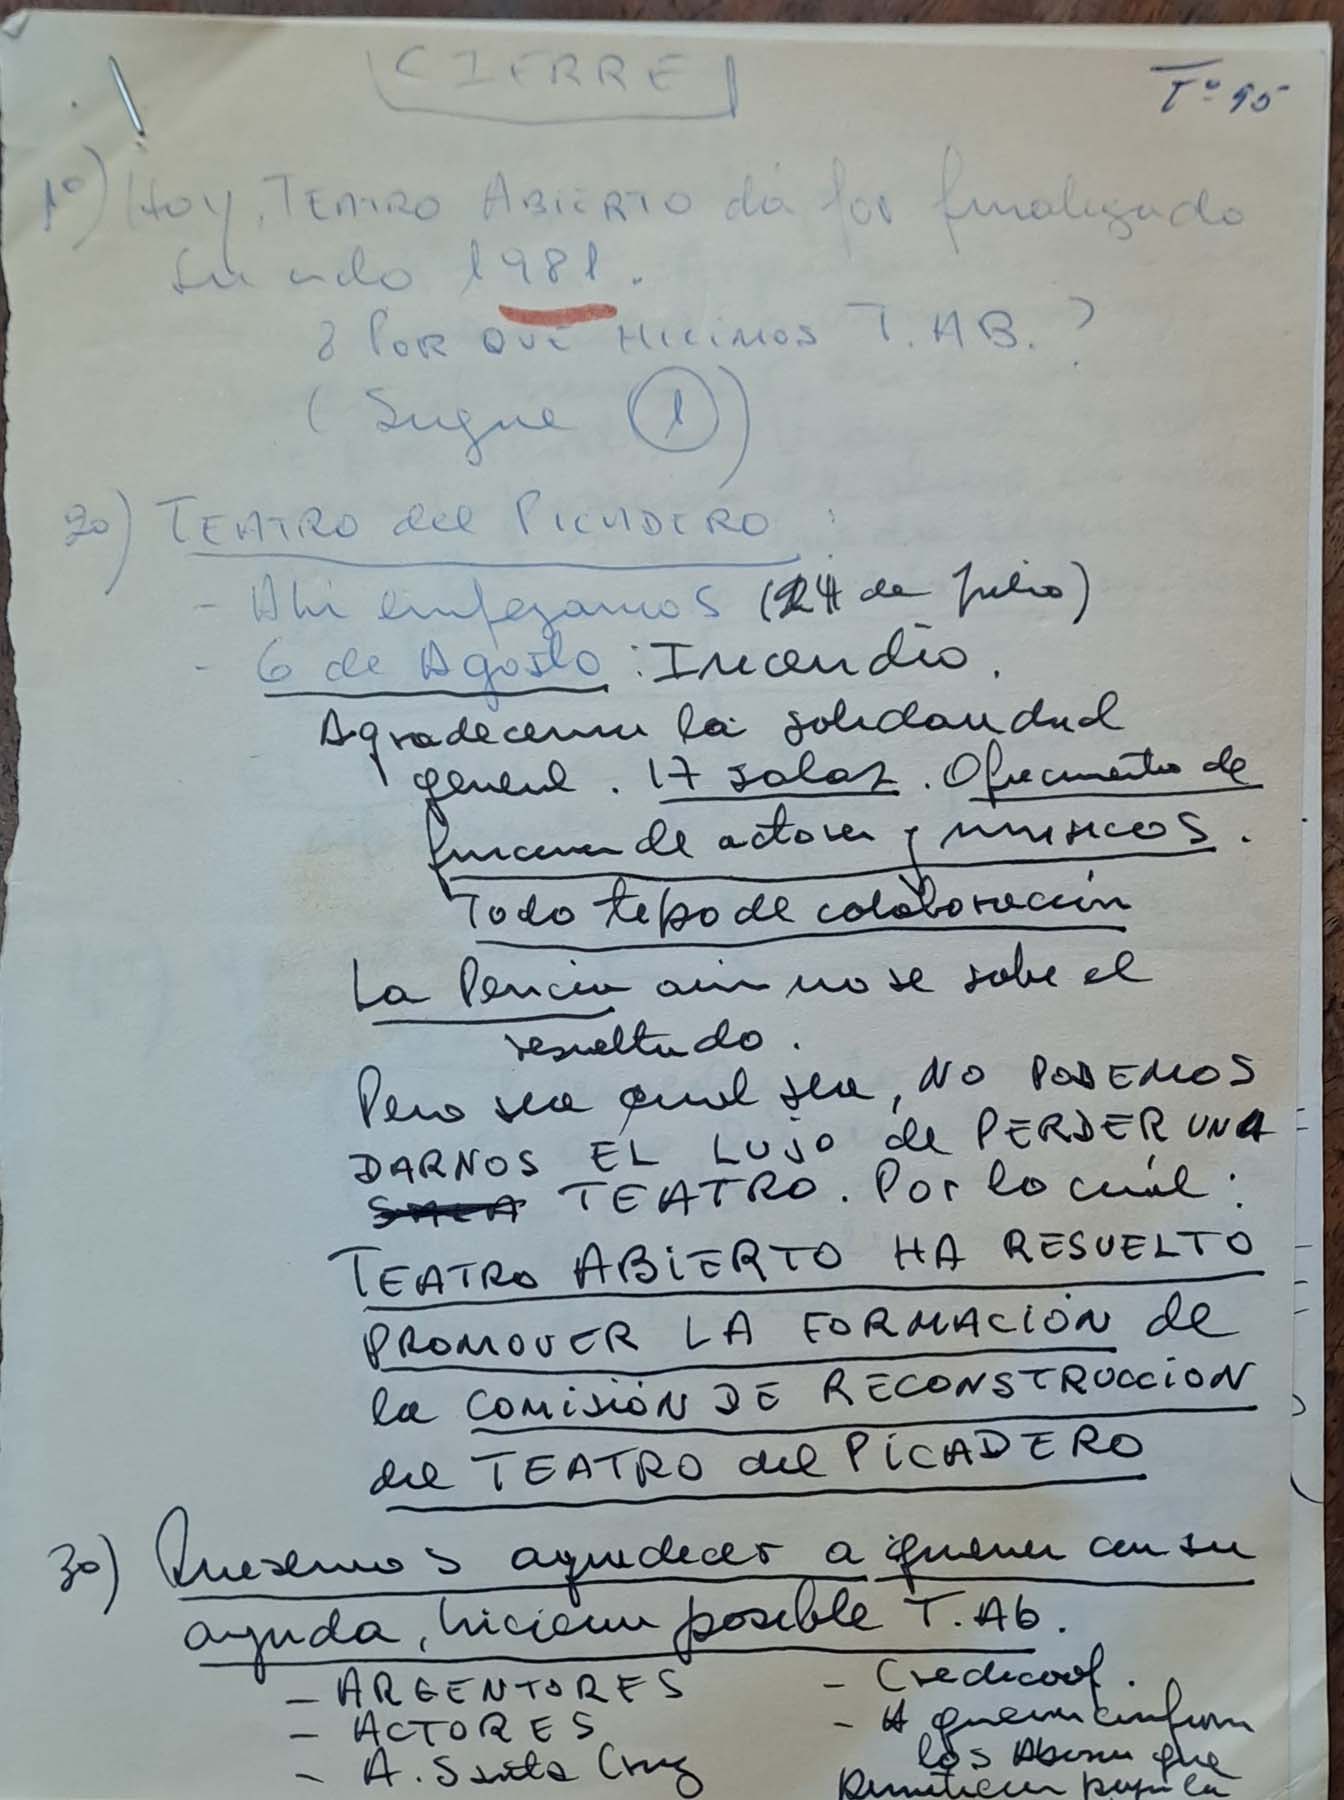 CIERRE
Tº 95
1º) Hoy, TEATRO ABIERTO dá por finalizado
su ciclo 1981.
¿ POR QUÉ HICIMOS T. AB. ?
( Sigue 1 )
2o) TEATRO del PICADERO :
- Ahi empezamos (24 de Julio)
- 6 de Agosto : Incendio.
Agradecemos la solidaridad
general. 17 salas. Ofrecimientos de
funciones de actores y musicos.
Todo tipo de colaboración
La Pericia aún no se sabe el
resultado.
Pero sea cual sea, NO PODEMOS
DARNOS EL LUJO de PERDER UNA
SALA TEATRO. Por lo cuál :
TEATRO ABIERTO HA RESUELTO
PROMOVER LA FORMACIÓN de
la COMISIÓN DE RECONSTRUCCION
del TEATRO del PICADERO
3o) Queremos agradecer a quienes con su
ayuda, hicieron posible T. Ab.
- ARGENTORES
- ACTORES
- A. Santa Cruz
- Credicoop.
- A quienes
los Abonos que